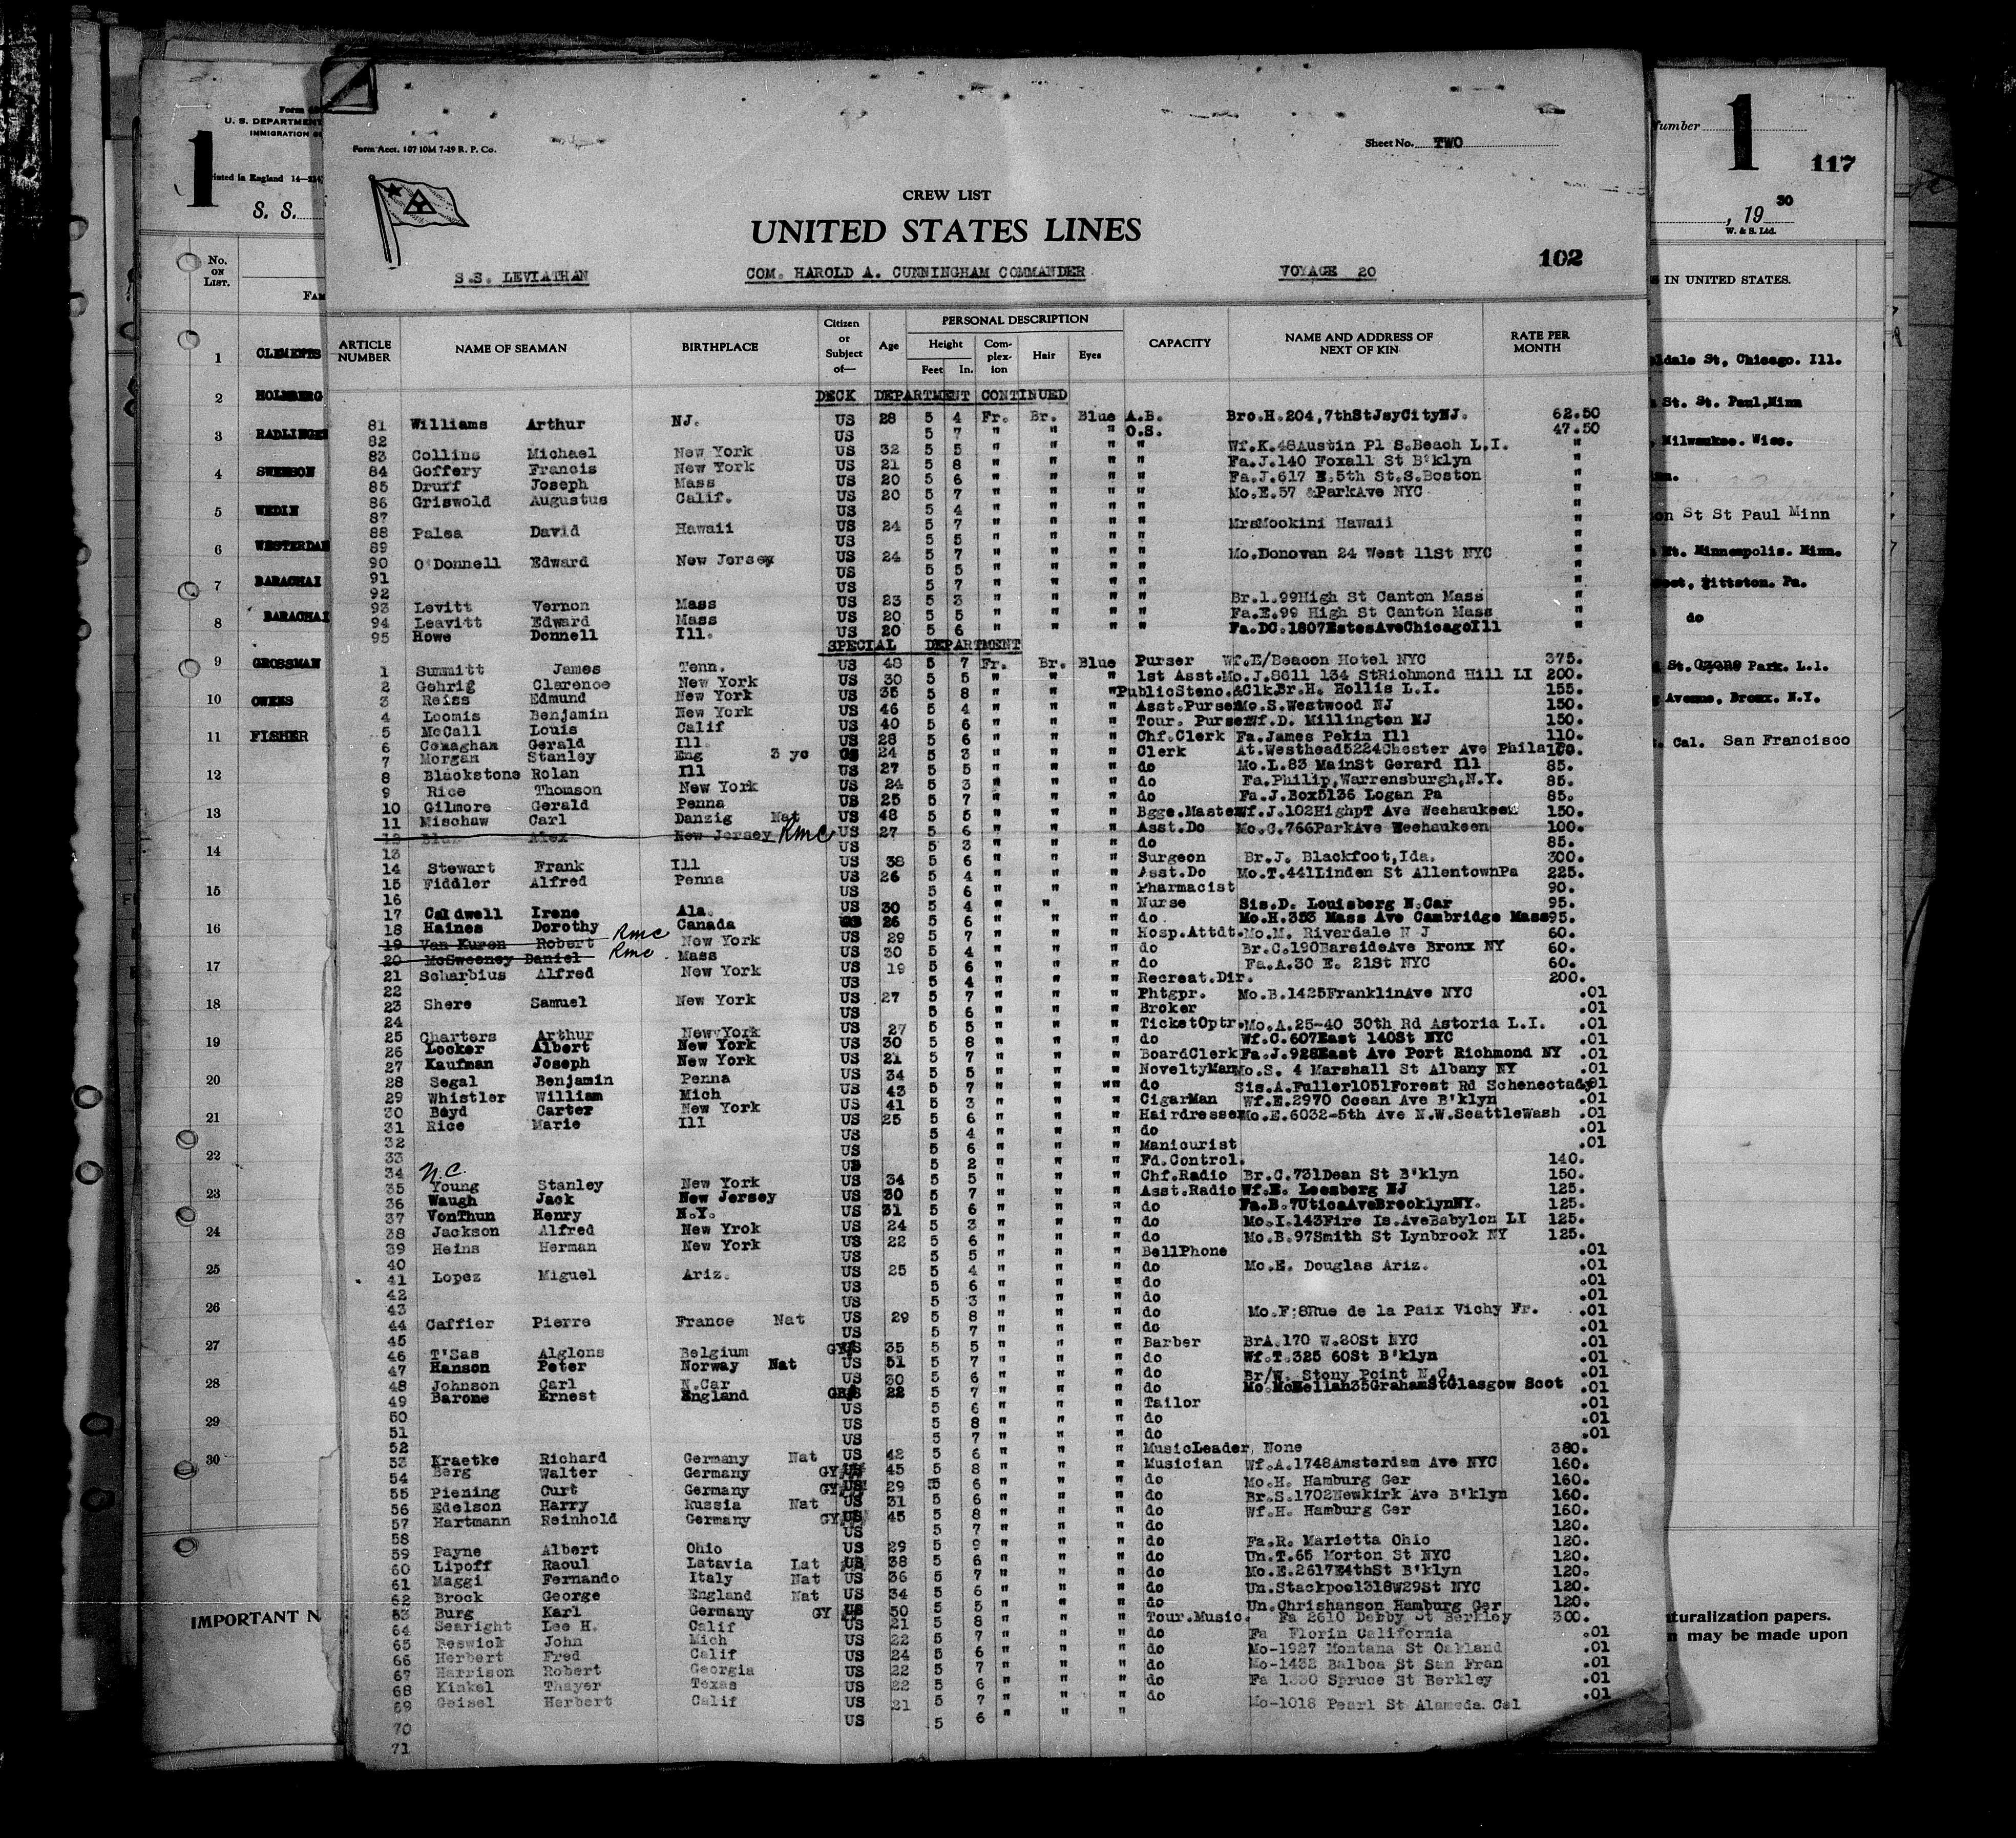 Form
U. S. DEPARTMENT
IMMIGRATION
1
Printed in England 14
S. S.
No. ON LIST.
FAM
1 CLEMENTS
2 HOLMBERG
3 RADLINGER
4 SWENSON
5 WEDIN
6 WESTERDAH
7 BARACHAI
8 BARACHAI
9 GROSSMAN
10 OWENS
11 FISHER
12
13
14
15
16
17
18
19
20
21
22
23
24
25
26
27
28
29
30
IMPORTANT N
Form Acct. 107 10M 7-29 R. P. Co.
Sheet No. TWO
CREW LIST
UNITED STATES LINES
102
S.S. LEVIATHAN COM. HAROLD A. CUNNINGHAM COMMANDER VOYAGE 20
ARTICLE NUMBER NAME OF SEAMAN BIRTHPLACE Citizen or Subject of— Age PERSONAL DESCRIPTION Height Feet In. Complexion Hair Eyes CAPACITY NAME AND ADDRESS OF NEXT OF KIN RATE PER MONTH
DECK DEPARTMENT CONTINUED
81 Williams Arthur NJ. US 28 5 4 Fr. Br. Blue A.B. Bro.H.204,7thStJsyCityNJ. 62.50
82 US 5 7 " " " O.S. 47.50
83 Collins Michael New York US 32 5 5 " " " " Wf.K.48Austin Pl S.Beach L.I. "
84 Goffery Francis New York US 21 5 8 " " " " Fa.J.140 Foxall St B'klyn "
85 Druff Joseph Mass US 20 5 6 " " " " Fa.J.617 E.5th St.S.Boston "
86 Griswold Augustus Calif. US 20 5 7 " " " " Mo.E.57 &ParkAve NYC "
87 US 5 4 " " " " "
88 Palea David Hawaii US 24 5 7 " " " " MrsMookini Hawaii "
89 US 5 5 " " " " "
90 O'Donnell Edward New Jersey US 24 5 7 " " " " Mo.Donovan 24 West 11St NYC "
91 US 5 5 " " " " "
92 US 5 7 " " " " "
93 Levitt Vernon Mass US 23 5 3 " " " " Br.l.99High St Canton Mass "
94 Leavitt Edward Mass US 20 5 5 " " " " Fa.E.99 High St Canton Mass "
95 Howe Donnell Ill. US 20 5 6 " " " " Fa.DC.1807EstesAveChicagoIll
SPECIAL DEPARTMENT
1 Summitt James Tenn. US 40 5 7 Fr. Br. Blue Purser Wf.E/Beacon Hotel NYC 375.
2 Gehrig Clarence New York US 30 5 5 " " " 1st Asst.Mo.J.8611 134 StRichmond Hill LI 200.
3 Reiss Edmund New York US 35 5 8 " " " PublicSteno.&Clk.Br.H. Hollis L.I. 155.
4 Loomis Benjamin New York US 46 5 4 " " " Asst.PurserMo.S.Westwood NJ 150.
5 McCall Louis Calif US 40 5 6 " " " Tour. PurserWf.D. Millington NJ 150.
6 Conaghan Gerald Ill. US 28 5 6 " " " Chf.Clerk Fa.James Pekin Ill 110.
7 Morgan Stanley Eng 3 yc 24 5 3 " " " Clerk At.Westhead5224Chester Ave Phila
8 Blackstone Rolan Ill US 27 5 5 " " " do Mo.L.83 MainSt Gerard Ill 85.
9 Rice Thomson New York US 24 5 3 " " " do Fa.Philip,Warrensburgh,N.Y. 85.
10 Gilmore Gerald Penna US 25 5 7 " " " do Fa.J.Box5136 Logan Pa 85.
11 Mischaw Carl Danzig Nat US 48 5 5 " " " Bgge.MasterWf.J.102HighpT Ave Weehauken 150.
12 Alex New Jersey Rmc US 27 5 6 " " " Asst.Do Mo.C.766ParkAve Weehauken 100.
13 US 5 3 " " " do 85.
14 Stewart Frank Ill US 38 5 6 " " " Surgeon Br.J. Blackfoot,Ida. 300.
15 Fiddler Alfred Penna US 26 5 4 " " " Asst.Do Mo.T.441Linden St AllentownPa 225.
16 US 5 6 " " " Pharmacist 90.
17 Caldwell Irene Ala. US 30 5 4 " " " Nurse Sis.D. Louisberg N.Car 95.
18 Haines Dorothy Canada 26 5 6 " " " do Mo.H.353 Mass Ave Cambridge Mass95.
19 Van Kuren Robert Rmc New York US 29 5 7 " " " Hosp.Attdt.Mo.M. Riverdale N J 60.
20 McSweeney Daniel Rmc Mass US 30 5 4 " " " do Br.C.190BarsideAve Bronx NY 60.
21 Scharbius Alfred New York US 19 5 6 " " " do Fa.A.30 E. 21St NYC 60.
22 US 5 4 " " " Recreat.Dir. 200.
23 Shere Samuel New York US 27 5 7 " " " Phtgpr. Mo.B.1425FranklinAve NYC .01
24 US 5 6 " " " Broker .01
25 Charters Arthur New York US 27 5 5 " " " TicketOptr.Mo.A.25-40 30th Rd Astoria L.I. .01
26 Locker Albert New York US 30 5 8 " " " do Wf.C.607East 140St NYC .01
27 Kaufman Joseph New York US 21 5 7 " " " BoardClerkFa.J.928East Ave Port Richmond NY .01
28 Segal Benjamin Penna US 34 5 5 " " " NoveltyManMo.S. 4 Marshall St Albany NY .01
29 Whistler William Mich US 43 5 7 " " "" do Sis.A.Fuller1051Forest Rd Schenectady01
30 Boyd Carter New York US 41 5 3 " " " CigarMan Wf.E.2970 Ocean Ave B'klyn .01
31 Rice Marie Ill US 25 5 6 " " " HairdresserMo.E.6032-5th Ave N.W.SeattleWash .01
32 US 5 4 " " " do .01
33 US 5 6 " " " Manicurist .01
34 N.C. US 5 2 " " " Fd.Control. 140.
35 Young Stanley New York US 34 5 5 " " " Chf.Radio Br.C.731Dean St B'klyn 150.
36 Waugh Jack New Jersey US 30 5 7 " " " Asst.Radio Wf.E. Leesberg NJ 125.
37 VonThun Henry N.Y. US 31 5 6 " " " do Fa.B.7UticaAveBrooklynNY. 125.
38 Jackson Alfred New Yrok US 24 5 3 " " " do Mo.I.143Fire Is.AveBabylon LI 125.
39 Heins Herman New York US 22 5 6 " " " do Mo.B.97Smith St Lynbrook NY 125.
40 US 5 5 " " " BellPhone .01
41 Lopez Miguel Ariz. US 25 5 4 " " " do Mo.E. Douglas Ariz. .01
42 US 5 6 " " " do .01
43 US 5 3 " " " do .01
44 Caffier Pierre France Nat US 29 5 8 " " " do Mo.F;8Rue de la Paix Vichy Fr. .01
45 US 5 7 " " " do .01
46 T'Sas Alglons Belgium 35 5 5 " " " Barber BrA.170 W.80St NYC .01
47 Hanson Peter Norway Nat US 51 5 7 " " " do Wf.T.325 60St B'klyn .01
48 Johnson Carl N.Car US 30 5 6 " " " do Br/W. Stony Point N.C. .01
49 Barone Ernest England 22 5 7 " " " do Mo.McMellan35GrahamStGlasgow Scot .01
50 US 5 6 " " " Tailor .01
51 US 5 8 " " " do .01
52 US 5 7 " " " do .01
53 Kraetke Richard Germany Nat US 42 5 6 " " " MusicLeader, None 380.
54 Berg Walter Germany GY 45 5 8 " " " Musician Wf.A.1748Amsterdam Ave NYC 160.
55 Piening Curt Germany GY 29 5 6 " " " do Mo.H. Hamburg Ger 160.
56 Edelson Harry Russia Nat US 31 5 6 " " " do Br.S.1702Newkirk Ave B'klyn 160.
57 Hartmann Reinhold Germany GY 45 5 8 " " " do Wf.H. Hamburg Ger 160.
58 US 5 7 " " " do 120.
59 Payne Albert Ohio US 29 5 9 " " " do Fa.R. Marietta Ohio 120.
60 Lipoff Raoul Latavia Lat 38 5 6 " " " do Un.T.65 Morton St NYC 120.
61 Maggi Fernando Italy Nat US 36 5 7 " " " do Mo.E.2617E4thSt B'klyn 120.
62 Brock George England Nat US 34 5 6 " " " do Un.Stackpoel318W29St NYC 120.
63 Burg Karl Germany GY 50 5 5 " " " do Un.Chrishanson Hamburg Ger 120.
64 Searight Lee H. Calif US 21 5 8 " " " Tour.Music. Fa 2610 Debby St Berkley 300.
65 Beswick John Mich US 22 5 7 " " " do Fa Florin California .01
66 Herbert Fred Calif US 24 5 6 " " " do Mo-1927 Montana St Oakland .01
67 Harrison Robert Georgia US 22 5 7 " " " do Mo-1432 Balboa St San Fran .01
68 Kinkel Thayer Texas US 22 5 6 " " " do Fa 1330 Spruce St Berkley .01
69 Geisel Herbert Calif US 21 5 7 " " " do Mo-1018 Pearl St Alameda Cal .01
70 US 5 6 " " "
71
Number
1
117
, 19 30
W. & S. Ltd.
IN UNITED STATES.
dale St, Chicago. Ill.
St. St. Paul,Minn
Milwaukee. Wisc.
on St St Paul Minn
St. Minneapolis. Minn.
Pittston. Pa.
do
St. Ozone Park. L.I.
Avenue. Bronx. N.Y.
Cal. San Francisco
turalization papers.
may be made upon